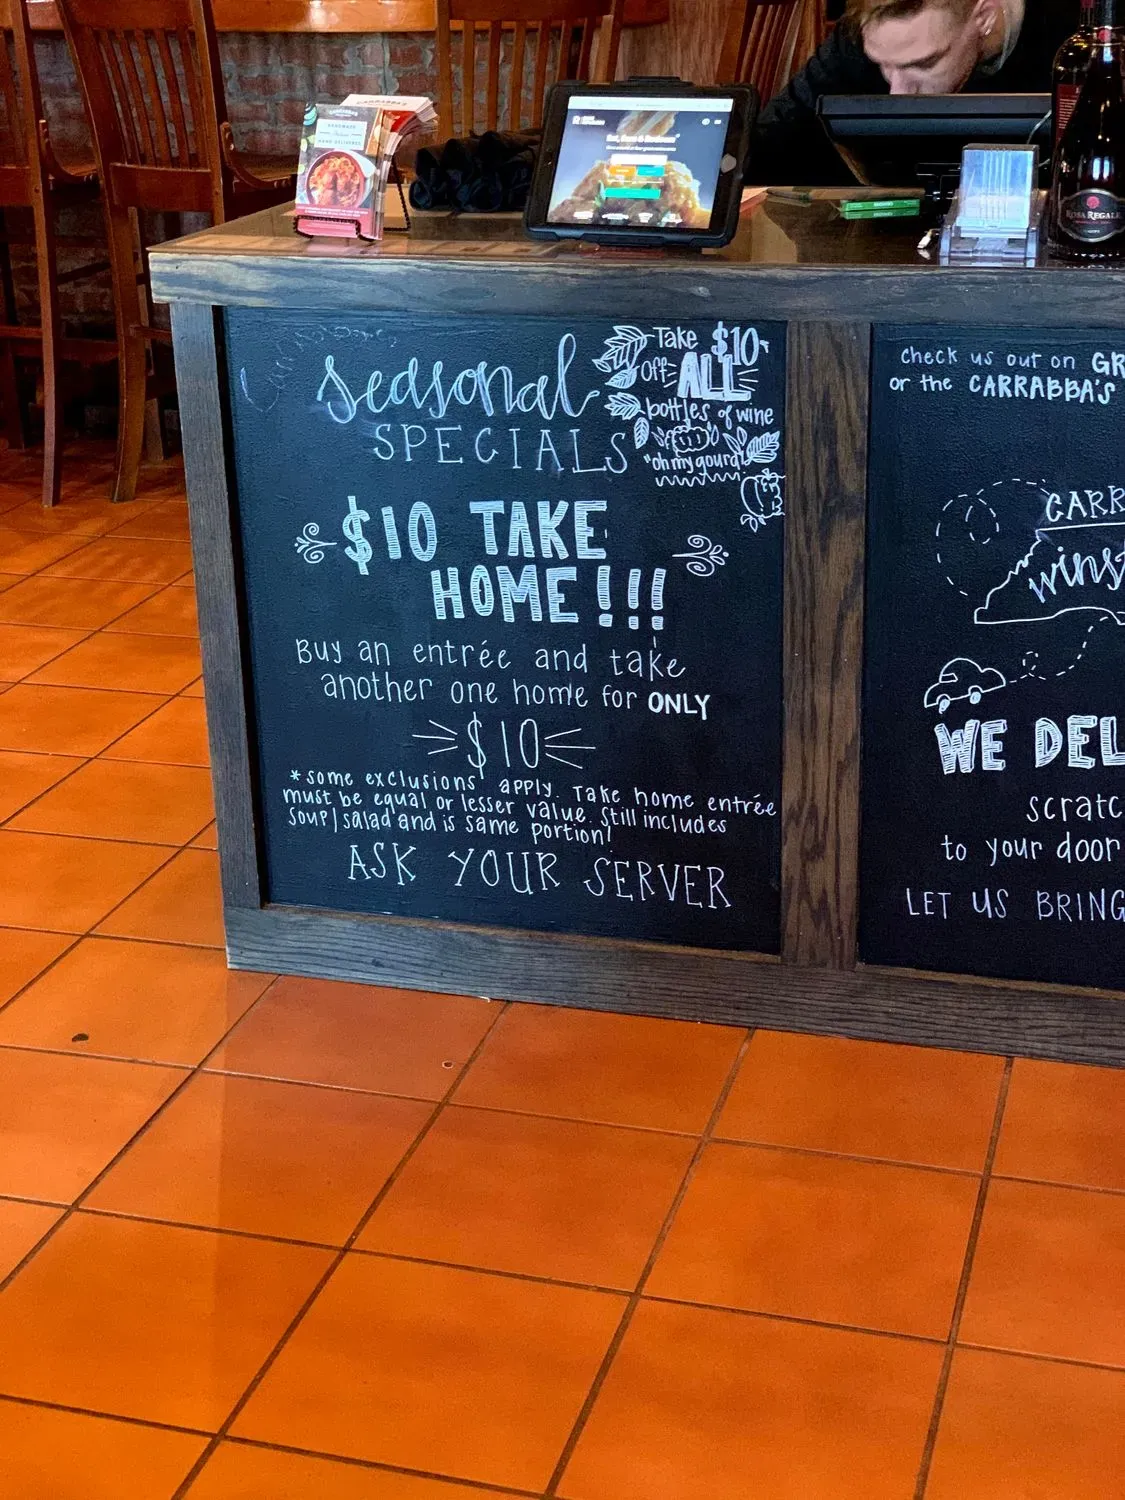 CARRABBA'S
HANDMADE
HAND DELIVERED
ROSA REGALE
Seasonal
SPECIALS
Take $10
off ALL
bottles of wine
"oh my gourd"
$10 TAKE
HOME!!!
Buy an entrée and take
another one home for ONLY
$10
*some exclusions apply. Take home entrée
must be equal or lesser value. Still includes
soup/salad and is same portion!
ASK YOUR SERVER
check us out on GR
or the CARRABBA'S
CARR
Winst
WE DEL
scratc
to your door
LET US BRING